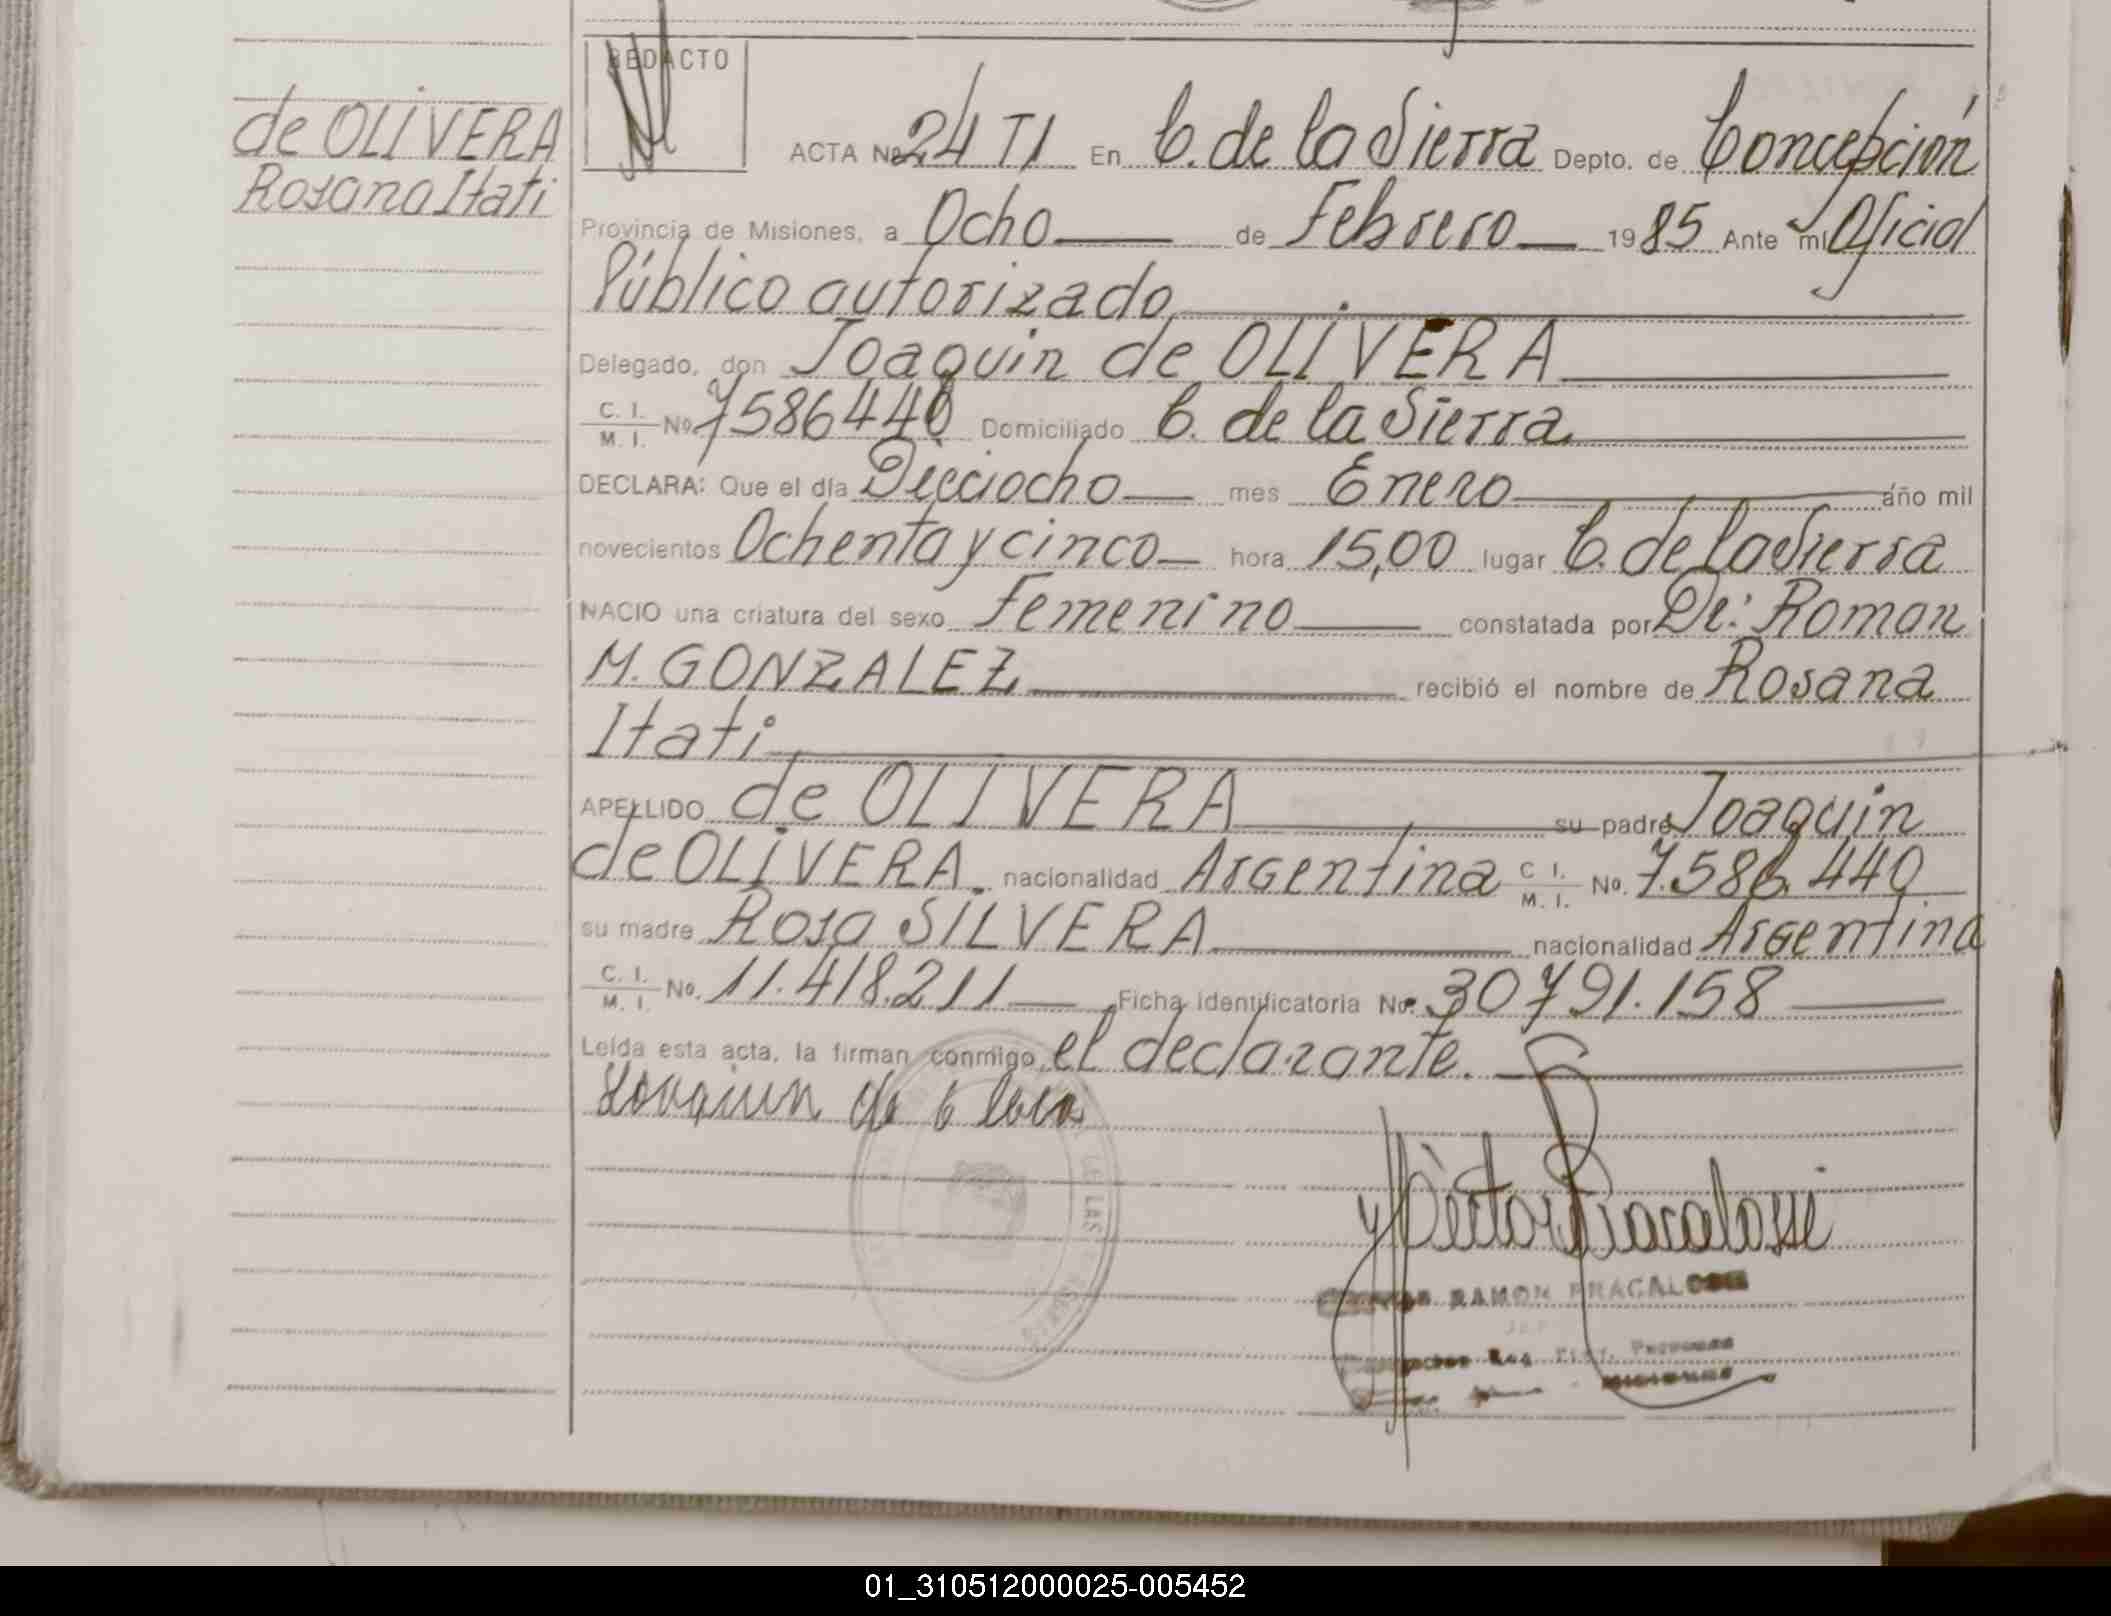 de OLIVERA
Rosana Itati
REDACTO
ACTA No. 24 TI En C. de la Sierra Depto. de Concepción
Provincia de Misiones, a Ocho de Febrero 1985 Ante mi Oficial
Público autorizado
Delegado, don Joaquin de OLIVERA
C. I. M. I. No. 7586440 Domiciliado C. de la Sierra
DECLARA: Que el día Dieciocho mes Enero año mil
novecientos Ochenta y cinco hora 15,00 lugar C. de la Sierra
NACIO una criatura del sexo Femenino constatada por Dr: Roman
M. GONZALEZ recibió el nombre de Rosana
Itati
APELLIDO de OLIVERA su padre Joaquin
de OLIVERA. nacionalidad Argentina C I. M. I. No. 7.586.440
su madre Rosa SILVERA nacionalidad Argentina
C. I. M. I. No. 11.418.211 Ficha identificatoria No. 30791.158
Leída esta acta, la firman conmigo el declarante.
Joaquin de
DE LAS
Héctor Fracalossi
RAMON FRACALOSSI
01_310512000025-005452